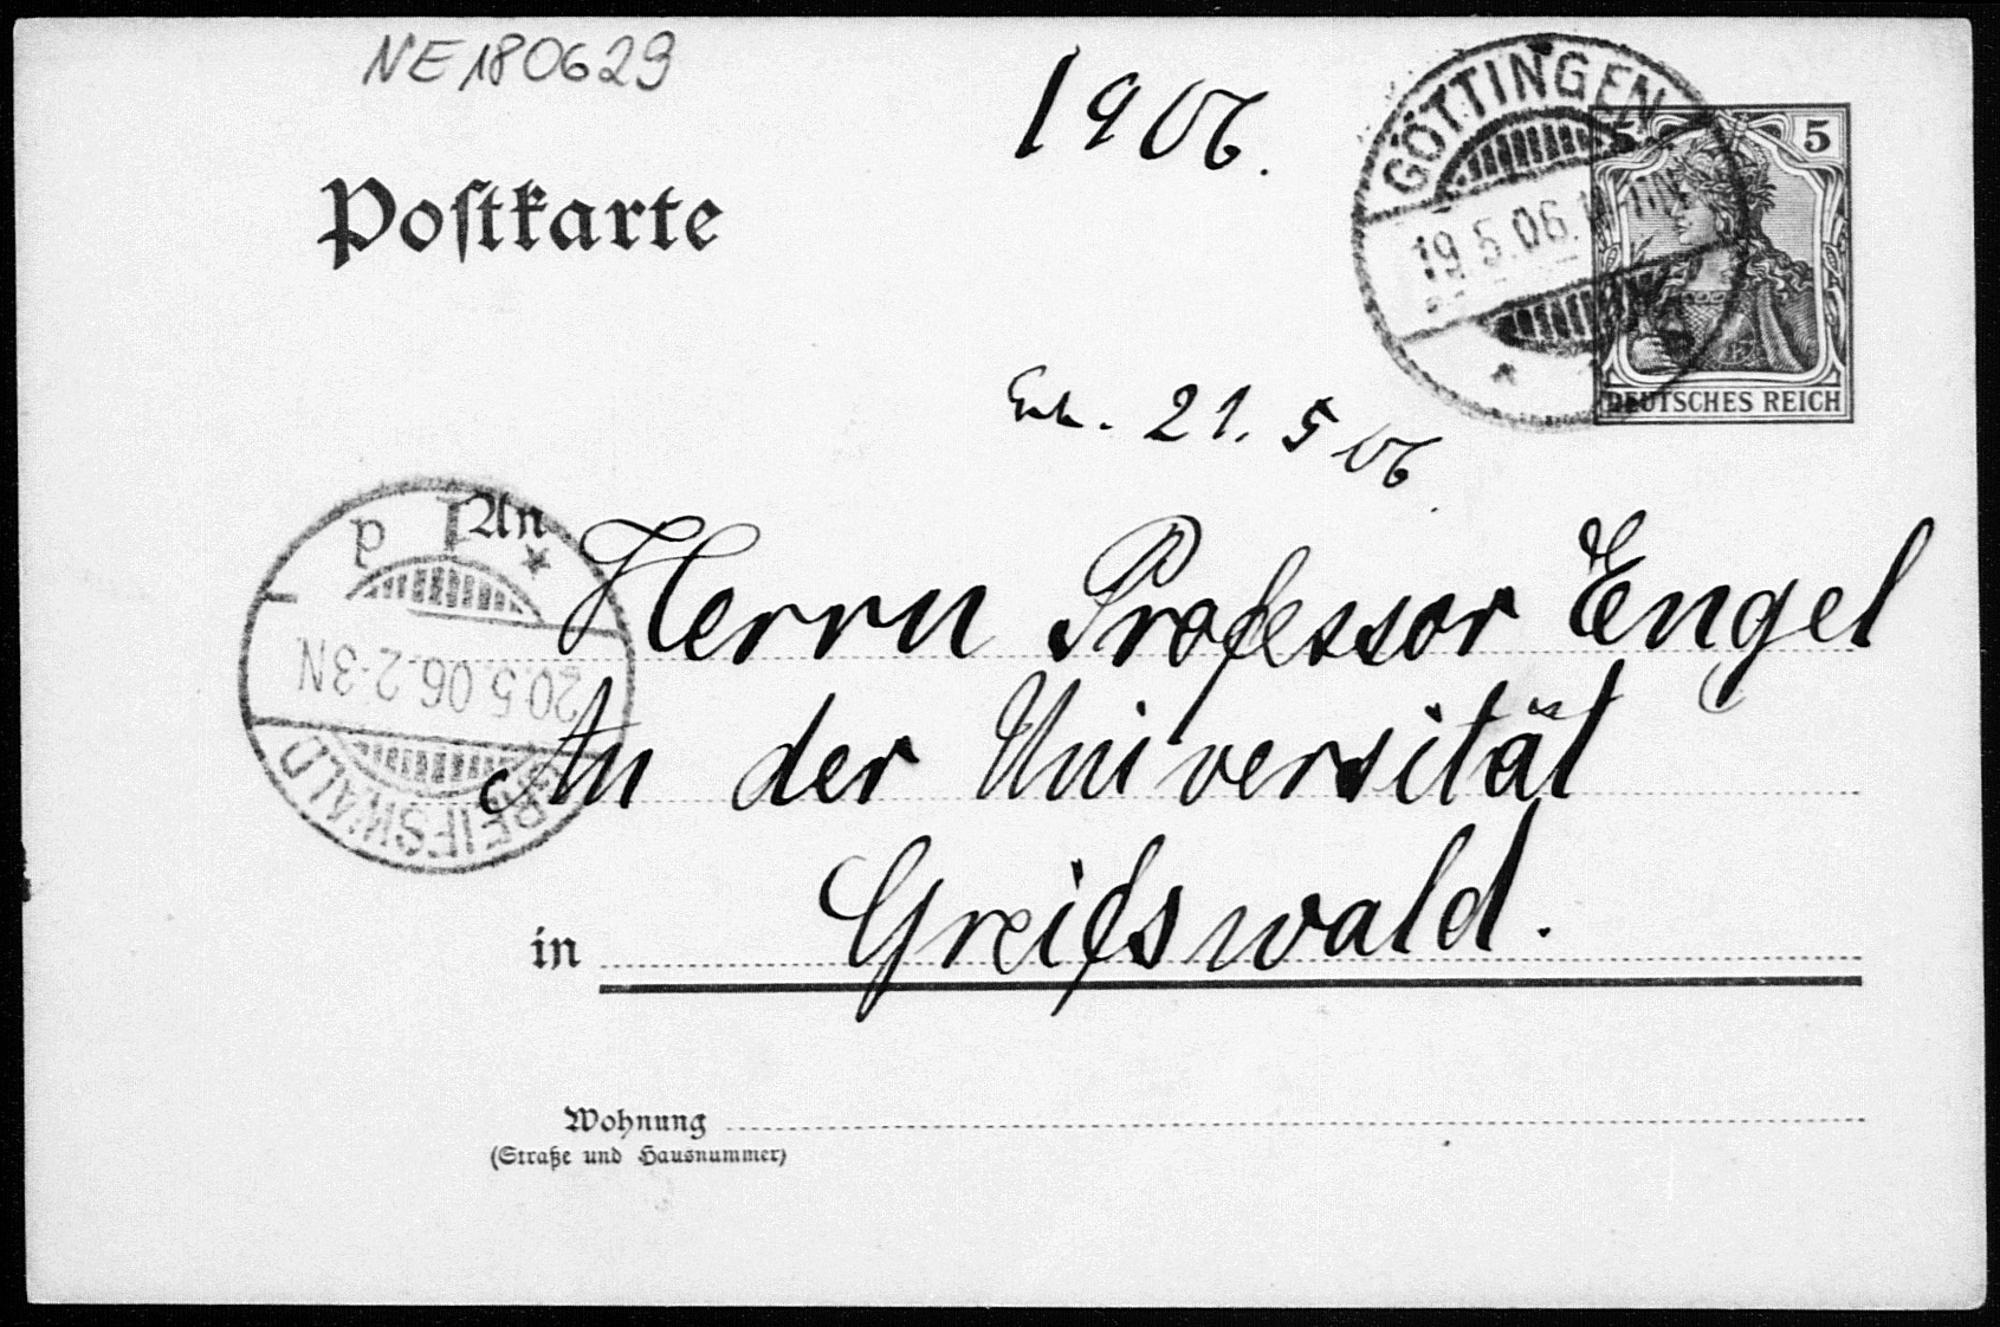 NE180629
1906.
Postkarte
GÖTTINGEN
19.5.06.
5 5
DEUTSCHES REICH
21. 5 06.
An
Herrn Professor Engel
An der Universität
in Greifswald.
GREIFSWALD
20.5.06.2-3N
Wohnung
(Straße und Hausnummer)